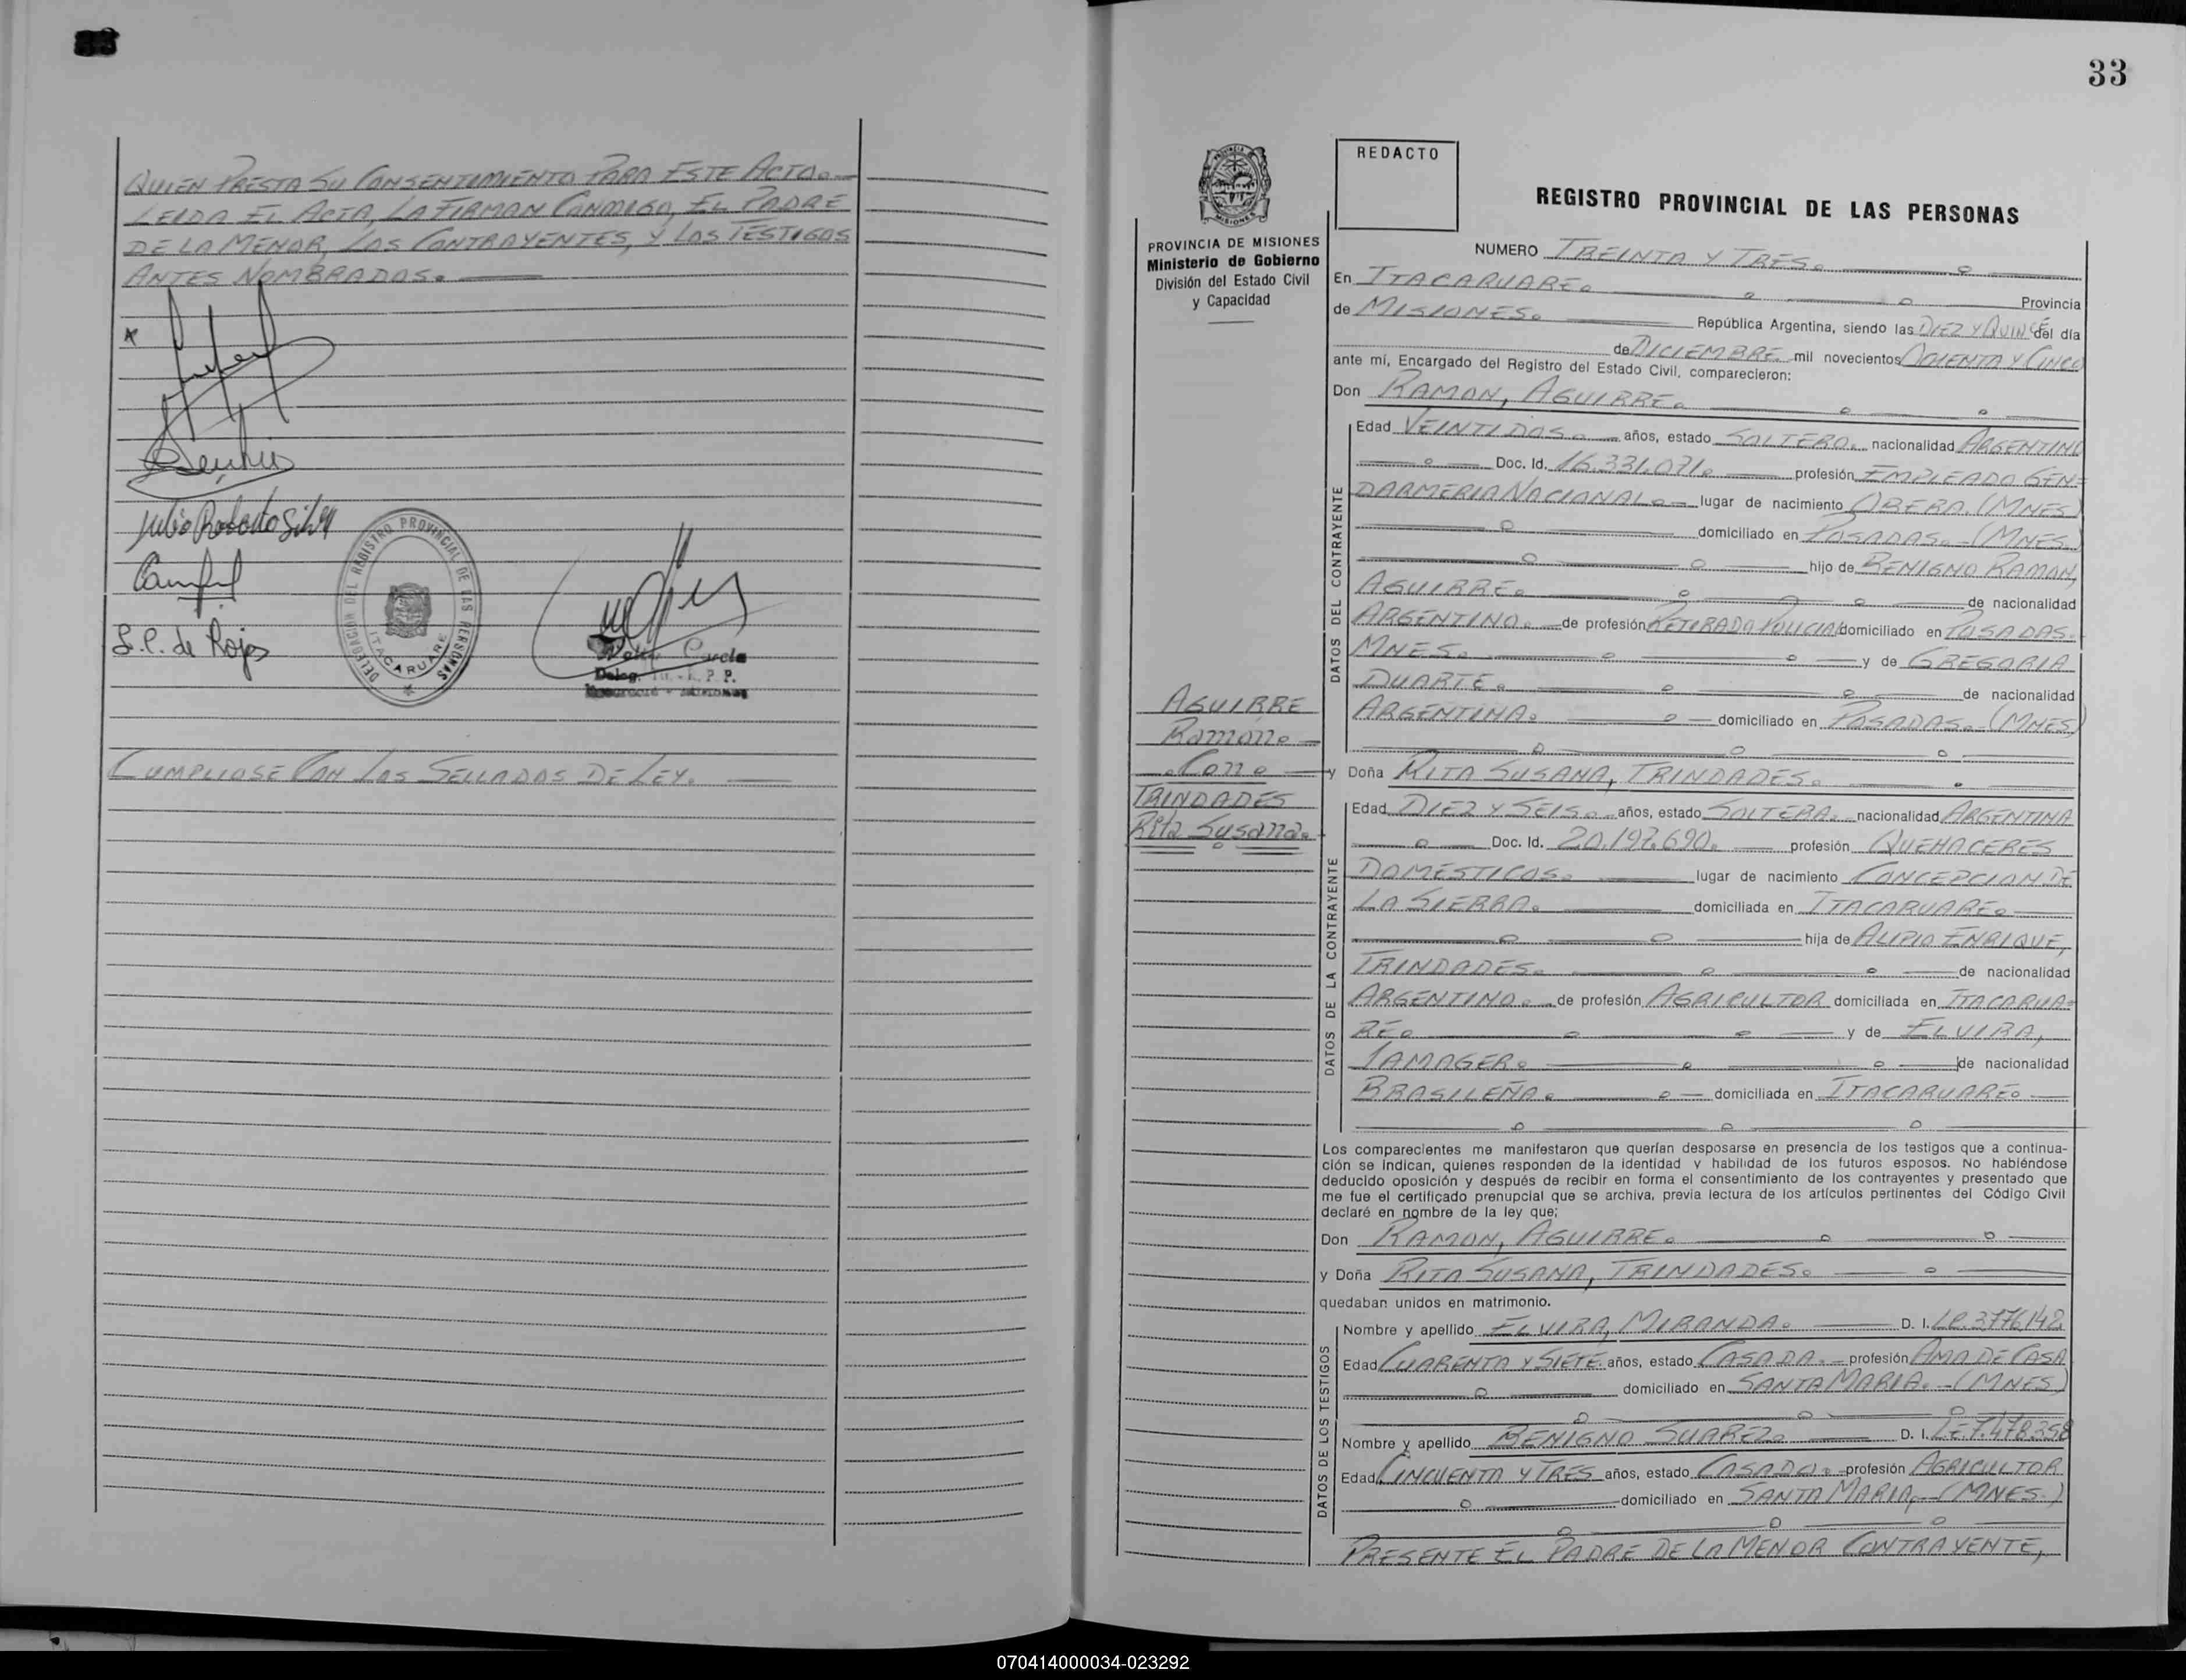 QUIEN PRESTA SU CONSENTIMIENTO PARA ESTE ACTO.
LEIDA EL ACTA, LA FIRMAN CONMIGO, EL PADRE
DE LA MENOR, LOS CONTRAYENTES, Y LOS TESTIGOS
ANTES NOMBRADOS.
Julio Rosendo Silva
S.P. de Rojas
DELEGACION DEL REGISTRO PROVINCIAL DE LAS PERSONAS
ITACARUARE
CUMPLIOSE CON LOS SELLADOS DE LEY.
33
REDACTO
PROVINCIA DE MISIONES
Ministerio de Gobierno
División del Estado Civil
y Capacidad
REGISTRO PROVINCIAL DE LAS PERSONAS
NUMERO TREINTA Y TRES.
En ITACARUARE. Provincia
de MISIONES. República Argentina, siendo las DIEZ Y QUINCE del día
de DICIEMBRE mil novecientos OCHENTA Y CINCO
ante mí, Encargado del Registro del Estado Civil, comparecieron:
Don RAMON, AGUIRRE.
DATOS DEL CONTRAYENTE
Edad VEINTIDOS. años, estado SOLTERO. nacionalidad ARGENTINO
Doc. Id. 16.331.071. profesión EMPLEADO GEN=
DARMERIA NACIONAL. lugar de nacimiento OBERA. (MNES)
domiciliado en POSADAS. (MNES.)
hijo de BENIGNO RAMON,
AGUIRRE. de nacionalidad
ARGENTINO. de profesión RETIRADO POLICIAL domiciliado en POSADAS.
MNES. y de GREGORIA
DUARTE. de nacionalidad
ARGENTINA. domiciliado en POSADAS. (MNES)
AGUIRRE
Ramon.
Con.
TRINDADES
Rita Susana.
y Doña RITA SUSANA, TRINDADES.
DATOS DE LA CONTRAYENTE
Edad DIEZ Y SEIS. años, estado SOLTERA. nacionalidad ARGENTINA
Doc. Id. 20.197.690. profesión QUEHACERES
DOMESTICOS. lugar de nacimiento CONCEPCION DE
LA SIERRA. domiciliada en ITACARUARE.
hija de ALIPIO ENRIQUE,
TRINDADES. de nacionalidad
ARGENTINO. de profesión AGRICULTOR domiciliada en ITACARUA=
RE. y de ELVIRA,
TAMAGER. de nacionalidad
BRASILEÑA. domiciliada en ITACARUARE.
Los comparecientes me manifestaron que querían desposarse en presencia de los testigos que a continua-
ción se indican, quienes responden de la identidad y habilidad de los futuros esposos. No habiéndose
deducido oposición y después de recibir en forma el consentimiento de los contrayentes y presentado que
me fue el certificado prenupcial que se archiva, previa lectura de los artículos pertinentes del Código Civil
declaré en nombre de la ley que;
Don RAMON, AGUIRRE.
y Doña RITA SUSANA, TRINDADES.
quedaban unidos en matrimonio.
DATOS DE LOS TESTIGOS
Nombre y apellido ELVIRA, MIRANDA. D. I. LC.3.776.142
Edad CUARENTA Y SIETE. años, estado CASADA. profesión AMA DE CASA
domiciliado en SANTA MARIA. (MNES)
Nombre y apellido BENIGNO SUAREZ. D. I. LE7.478.358
Edad CINCUENTA Y TRES años, estado CASADO. profesión AGRICULTOR
domiciliado en SANTA MARIA, (MNES.)
PRESENTE EL PADRE DE LA MENOR CONTRAYENTE,
070414000034-023292